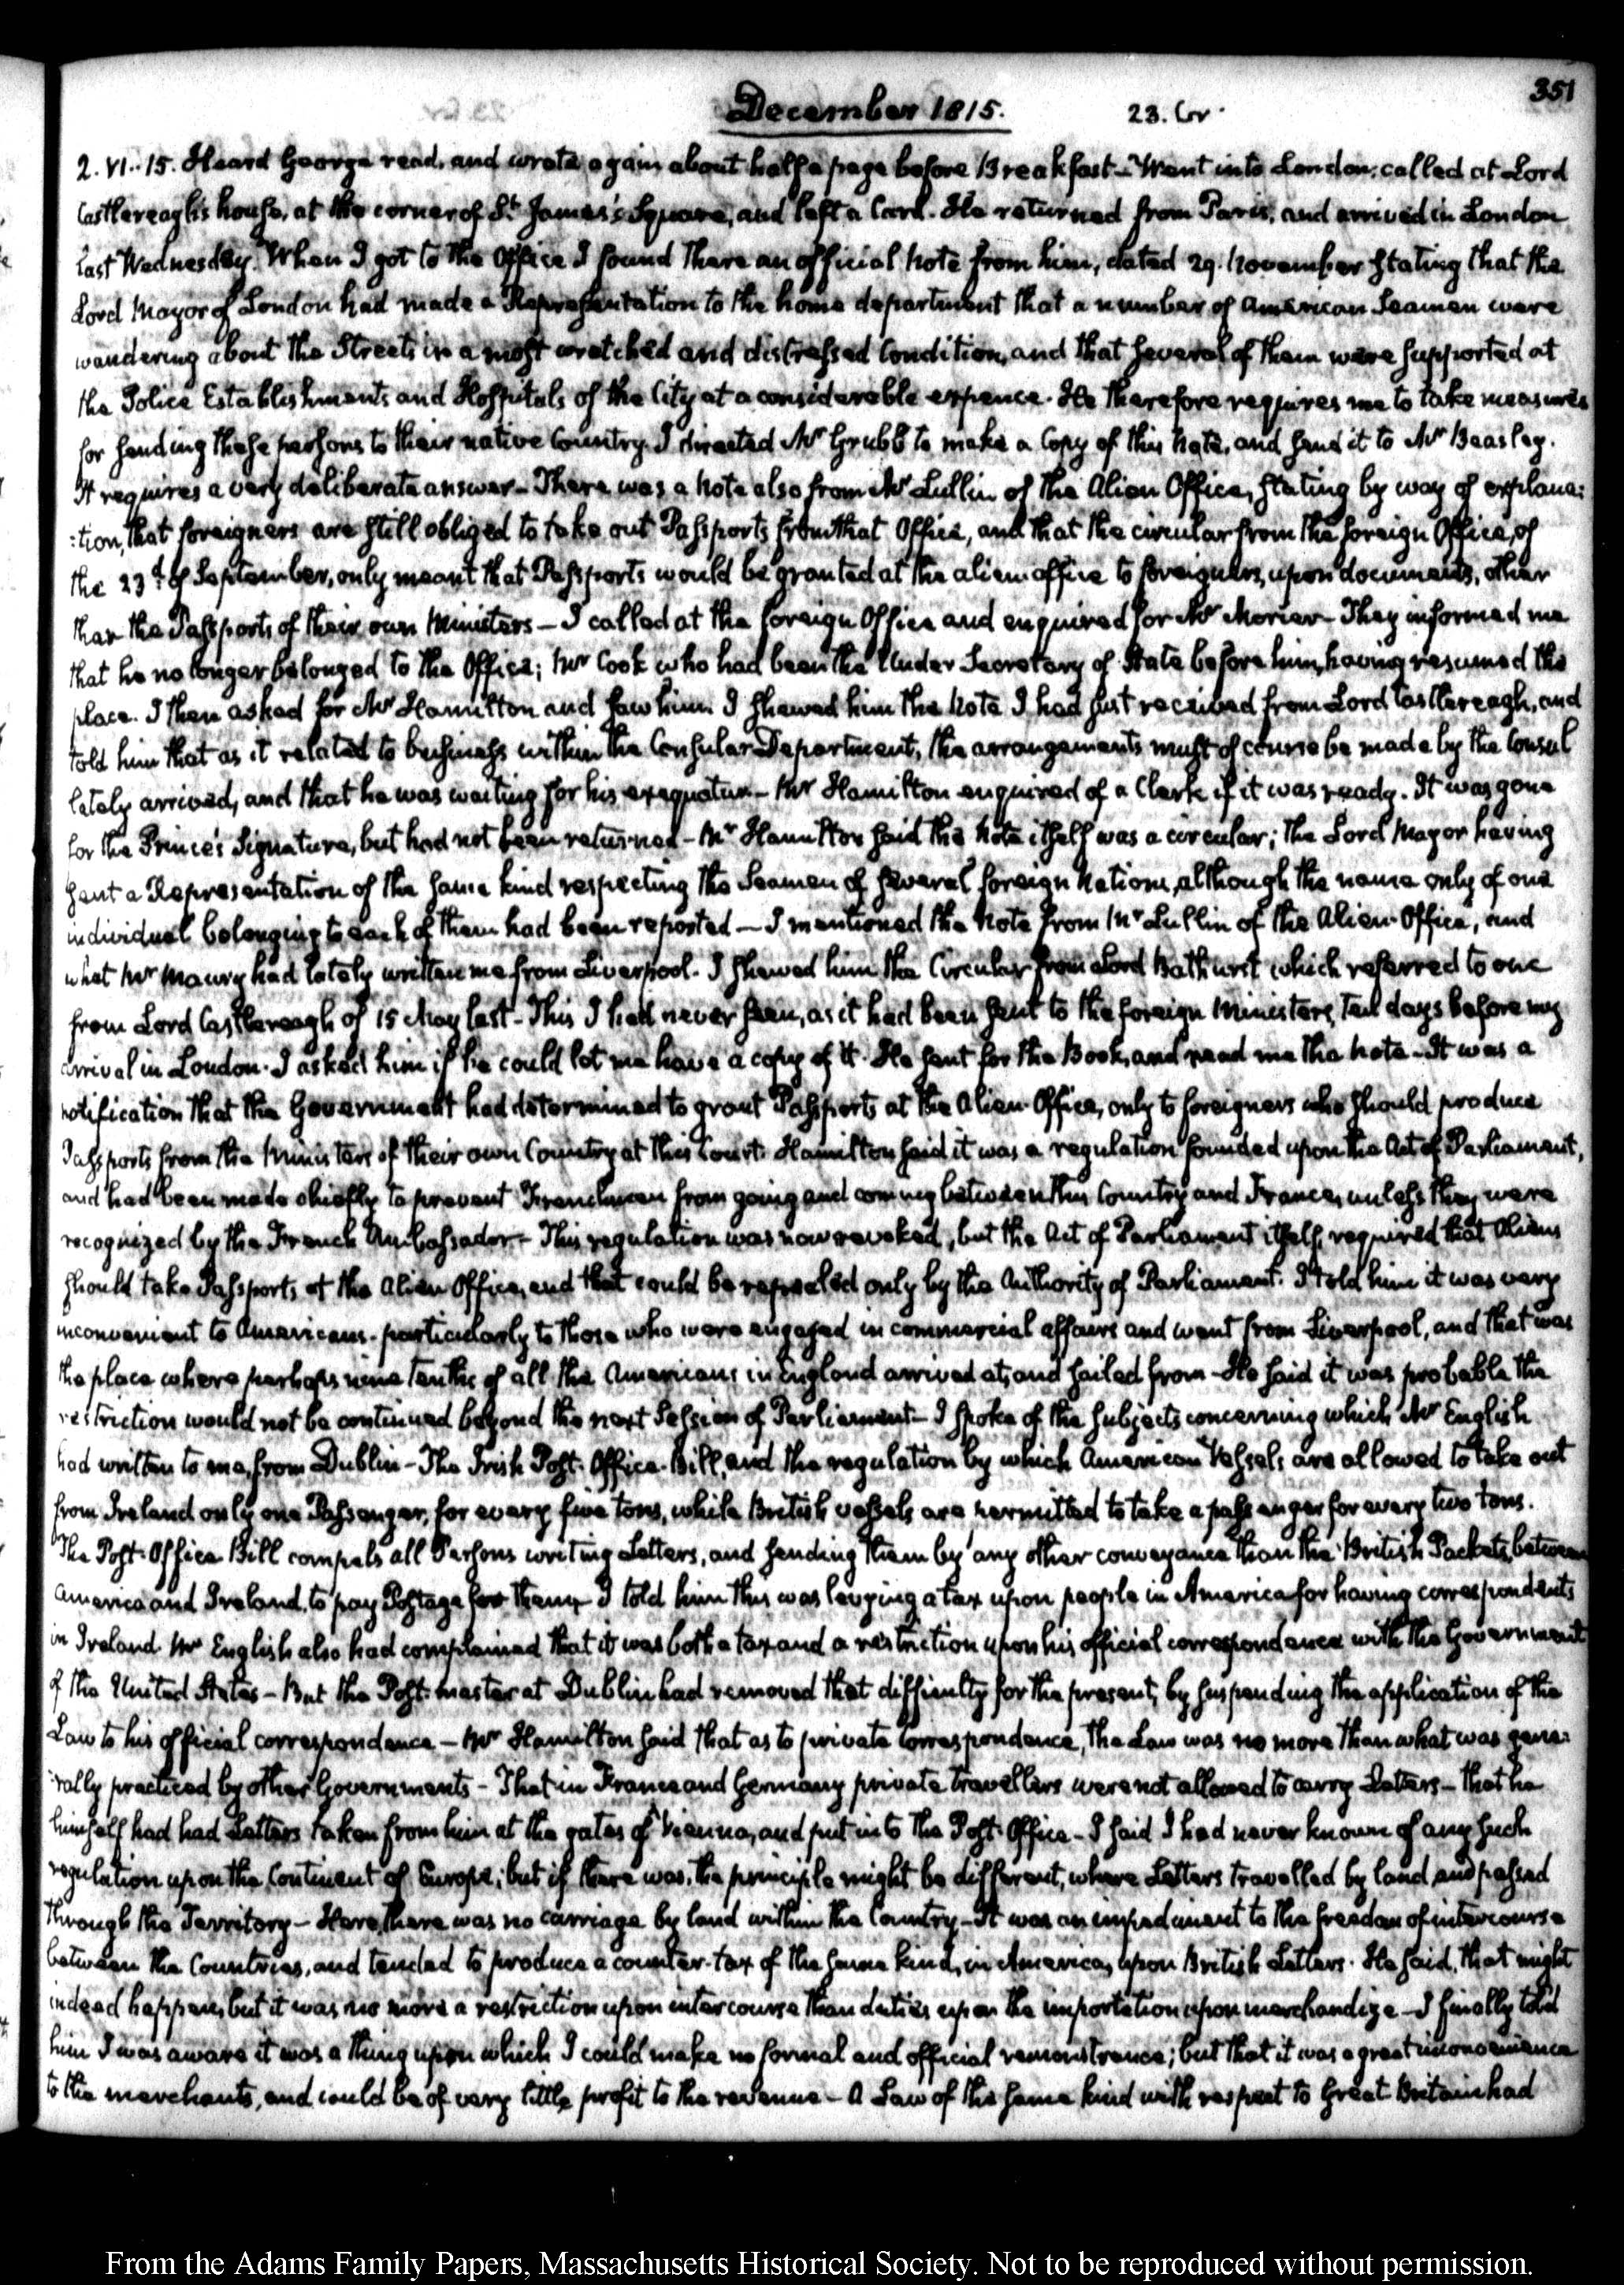 351
December 1815. 23. Gr.
2. VI..15. Heard George read, and wrote again about half a page before Breakfast - Went into London: called at Lord
Castlereagh's house, at the corner of St. James's Square, and left a Card. He returned from Paris, and arrived in London
last Wednesday. When I got to the Office I found there an official Note from him, dated 29. November stating that the
Lord Mayor of London had made a Representation to the home department that a number of American Seamen were
wandering about the Streets in a most wretched and distressed Condition, and that several of them were supported at
the Police Establishments and Hospitals of the City at a considerable expence. He therefore requires me to take measures
for sending these persons to their native Country. I directed Mr Grubb to make a Copy of this Note, and send it to Mr Beasley.
It requires a very deliberate answer - There was a Note also from Mr Lullin of the Alien Office, stating by way of explana:
:tion, that foreigners are still obliged to take out Passports from that Office, and that the circular from the foreign Office, of
the 23d of September, only meant that Passports would be granted at the alien office to foreigners, upon documents, other
than the Passports of their own Ministers - I called at the foreign Office and enquired for Mr Morier - They informed me
that he no longer belonged to the Office; Mr Cook who had been the Under Secretary of State before him, having resumed the
place. I then asked for Mr Hamilton and saw him. I shewed him the Note I had just received from Lord Castlereagh, and
told him that as it related to business within the Consular Department, the arrangements must of course be made by the Consul
lately arrived, and that he was waiting for his exequatur - Mr Hamilton enquired of a Clerk if it was ready. It was gone
for the Prince's Signature, but had not been returned - Mr Hamilton said the Note itself was a circular; the Lord Mayor having
sent a Representation of the same kind respecting the Seamen of several foreign Nations, although the name only of one
individual belonging to each of them had been reported - I mentioned the Note from Mr Lullin of the Alien-Office, and
what Mr Maury had lately written me from Liverpool. I shewed him the Circular from Lord Bathurst which referred to one
from Lord Castlereagh of 15 May last - This I had never seen, as it had been sent to the foreign Ministers, ten days before my
arrival in London. I asked him if he could let me have a copy of it. He sent for the Book, and read me the Note - It was a
notification that the Government had determined to grant Passports at the Alien-Office, only to foreigners who should produce
Passports from the Ministers of their own Country at this Court. Hamilton said it was a regulation founded upon the Act of Parliament,
and had been made chiefly to prevent Frenchmen from going and coming between this Country and France, unless they were
recognized by the French Ambassador - This regulation was now revoked, but the Act of Parliament itself, required that Aliens
should take Passports at the Alien Office, and that could be repealed only by the Authority of Parliament. I told him it was very
inconvenient to Americans - particularly to those who were engaged in commercial affairs and went from Liverpool, and that was
the place where perhaps nine tenths of all the Americans in England arrived at, and sailed from - He said it was probable the
restriction would not be continued beyond the next Session of Parliament - I spoke of the subjects concerning which Mr English
had written to me, from Dublin - The Irish Post-Office-Bill, and the regulation by which American Vessels are allowed to take out
from Ireland only one Passenger, for every five tons, while British vessels are permitted to take a passenger for every two tons.
The Post-Office Bill compels all Persons writing Letters, and sending them by any other conveyance than the British Packets, between
America and Ireland, to pay Postage for them - I told him this was levying a tax upon people in America for having correspondents
in Ireland. Mr English also had complained that it was both a tax and a restriction upon his official correspondence with the Government
of the United States - But the Post-master at Dublin had removed that difficulty for the present, by suspending the application of the
Law to his official correspondence - Mr Hamilton said that as to private Correspondence, the Law was no more than what was gene:
:rally practiced by other Governments - That in France and Germany private travellers were not allowed to carry Letters - that he
himself had had Letters taken from him at the gates of Vienna, and put into the Post-Office - I said I had never known of any such
regulation upon the Continent of Europe; but if there was, the principle might be different, where Letters travelled by land and passed
through the Territory - Here, there was no carriage by land within the Country - It was an impediment to the freedom of intercourse
between the Countries, and tended to produce a counter-tax of the same kind, in America, upon British Letters. He said, that might
indeed happen, but it was no more a restriction upon intercourse than duties upon the importation upon merchandize - I finally told
him I was aware it was a thing upon which I could make no formal and official remonstrance; but that it was a great inconvenience
to the merchants, and could be of very little profit to the revenue - A Law of the same kind with respect to Great-Britain had
From the Adams Family Papers, Massachusetts Historical Society. Not to be reproduced without permission.